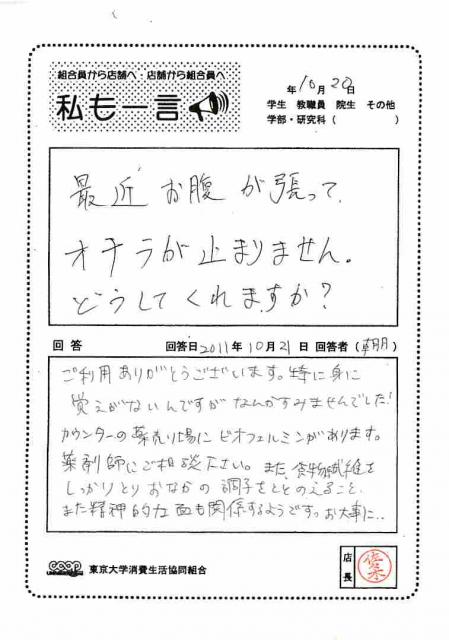 組合員から店舗へ 店舗から組合員へ
私も一言
年10月20日
学生 教職員 院生 その他
学部・研究科( )
最近お腹が張って、
オナラが止まりません。
どうしてくれますか?
回答 回答日2011年10月21日 回答者(
ご利用ありがとうございます。特に身に
覚えがないんですがなんかすみませんでした!
カウンターの薬売り場にビオフェルミンがあります。
薬剤師にご相談下さい。また、食物繊維を
しっかりとりおなかの調子をととのえること、
また精神的な面も関係するようですっお大事に…
coop 東京大学消費生活協同組合
店長